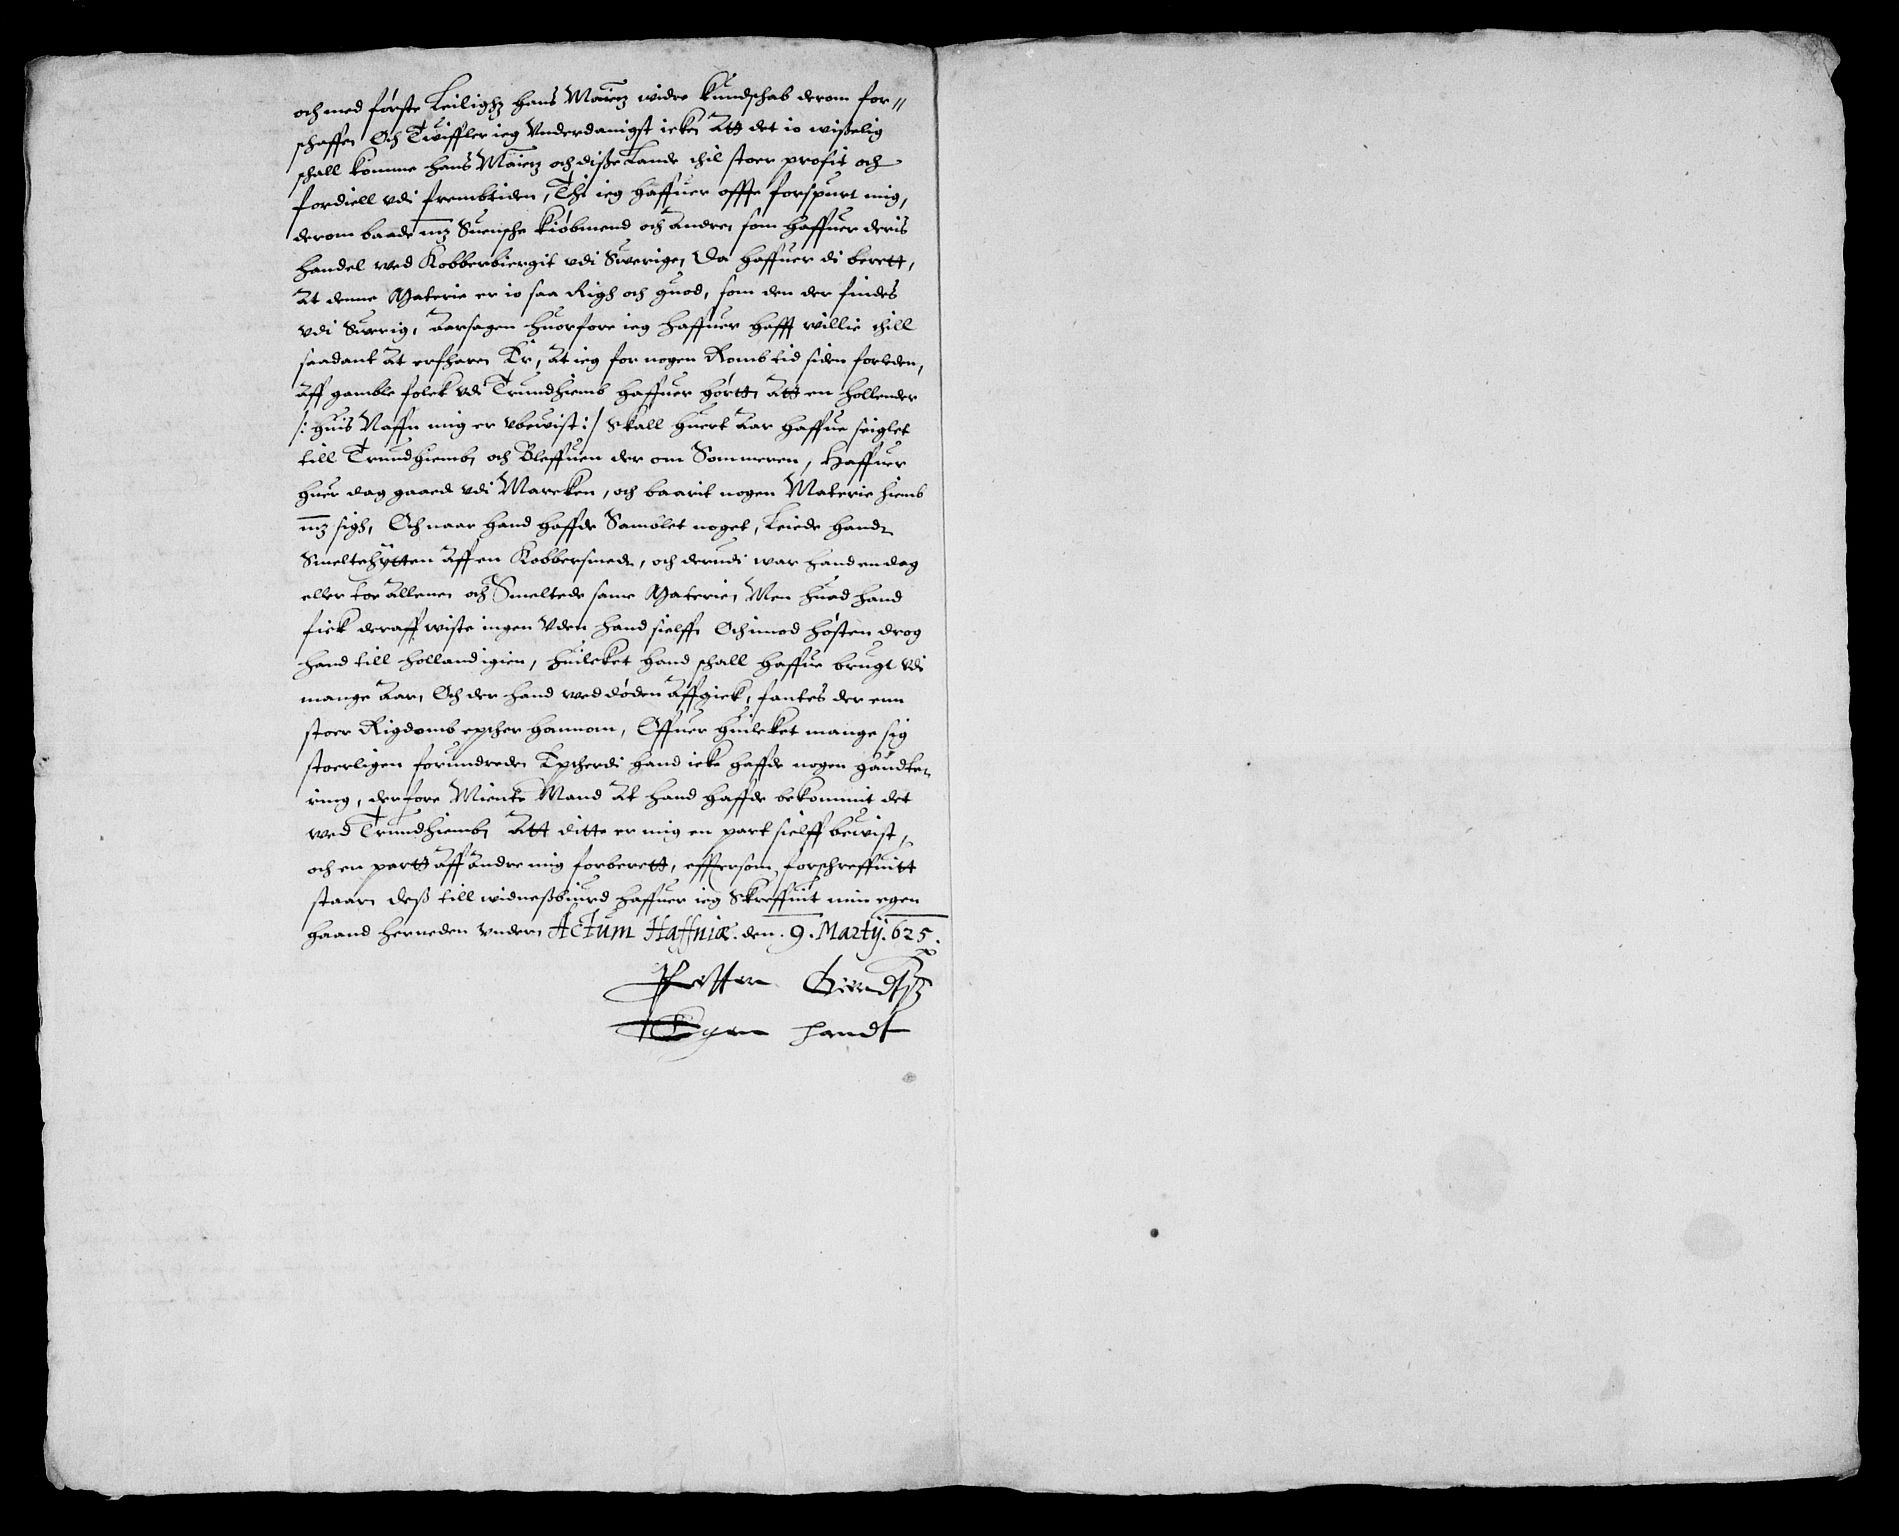 och med første Leilighz hans Maietz widre kundschab derom for//
schaffe, Och Twiffler ieg Vnderdanigst icke, Att det io wißelig
schall komme hans Maietz och diße Lande thil stoer profit och
fordiell vdi frembtiden, Thi ieg haffuer offte forspurt mig,
derom baade mz Suensche kiøbmend och Andre, som haffuer deris
handel wed Kobberbiergit vdi Swerige, Da haffuer di berett,
At denne Materie er io saa Righ och guod, som den der findes
vdi Swerrig, Aarsagen huorfore ieg haffuer hafft willie thill
saadant At erfhare, Er, At ieg for nogen Romb tid siden forleden,
Aff gamble folck vdi Trundhiemb haffuer hørtt, Att en hollender
/: huis Naffn mig er vbewist :/ Skall huert Aar haffue seiglet
till Trundhiemb, och Bleffuen der om Sommeren, Haffuer
huer dag gaaed vdi Marcken, och baarit nogen Materie hiemb
mz sigh, Och naar hand haffde Samblet noget, Leiede hand
Smeltehytten Aff en Kobbersmed, och derudi war hand en dag
eller toe Allene, och Smeltede same Materie, Men huad hand
fick deraff wiste ingen Vden hand sielff, Och imod høsten drog
hand till Holland igien, huilcket hand schall haffue brugt vdi
mange Aar, Och der hand wed døden Affgick, fantes der enn
stoer Rigdomb epther hannom, Offuer huilcket mange sig
stoerligen forundrede, Epcherdi hand icke haffde nogen handte,
ring, derfore Miente Mand At hand haffde bekommit det
wed Trundhiemb, Att ditte er mig en part sielff bewist,
och en partt Aff Andre mig forberett, efftersom forschreffuitt
staar, deß till widneßbiurd haffuer ieg Skreffuit min egen
haand herneden vnder, Actum Haffniæ. den. 9. Martij. 625.
Petter
Egen handt